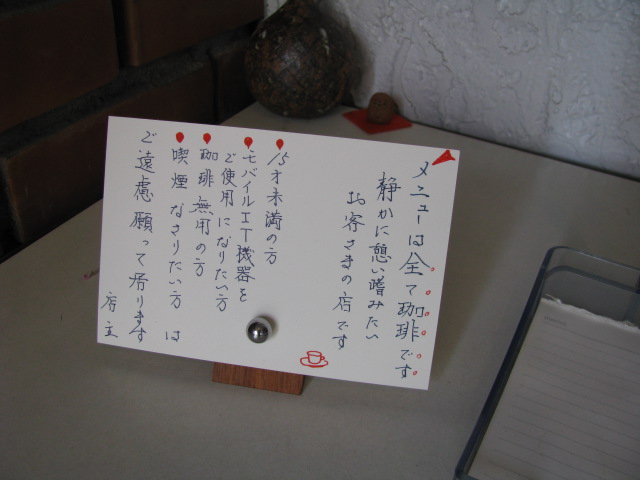 メニューは全て珈琲です
静かに憩い嗜みたい
お客さまの店です
15才未満の方
モバイルIT機器を
ご使用になりたい方
珈琲無用の方
喫煙なさりたい方は
ご遠慮願って居ります
店主